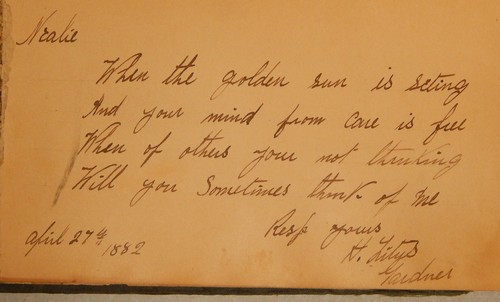 Nealie
When the golden sun is seting
And your mind from care is free
When of others your not thinking
Will you Sometimes think of me
Resp yours
April 27th 1882
H.
Gardner